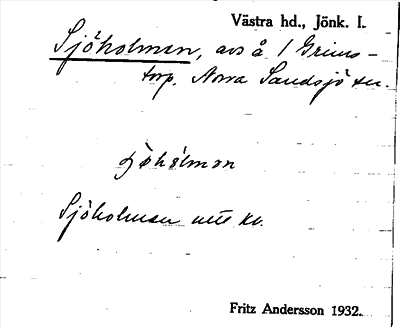 Västra hd., Jönk. l.
Sjöholmen, avs å 1 Grims-
torp. Norra Sandsjö sn.
Sjöholmen
Fritz Andersson 1932.